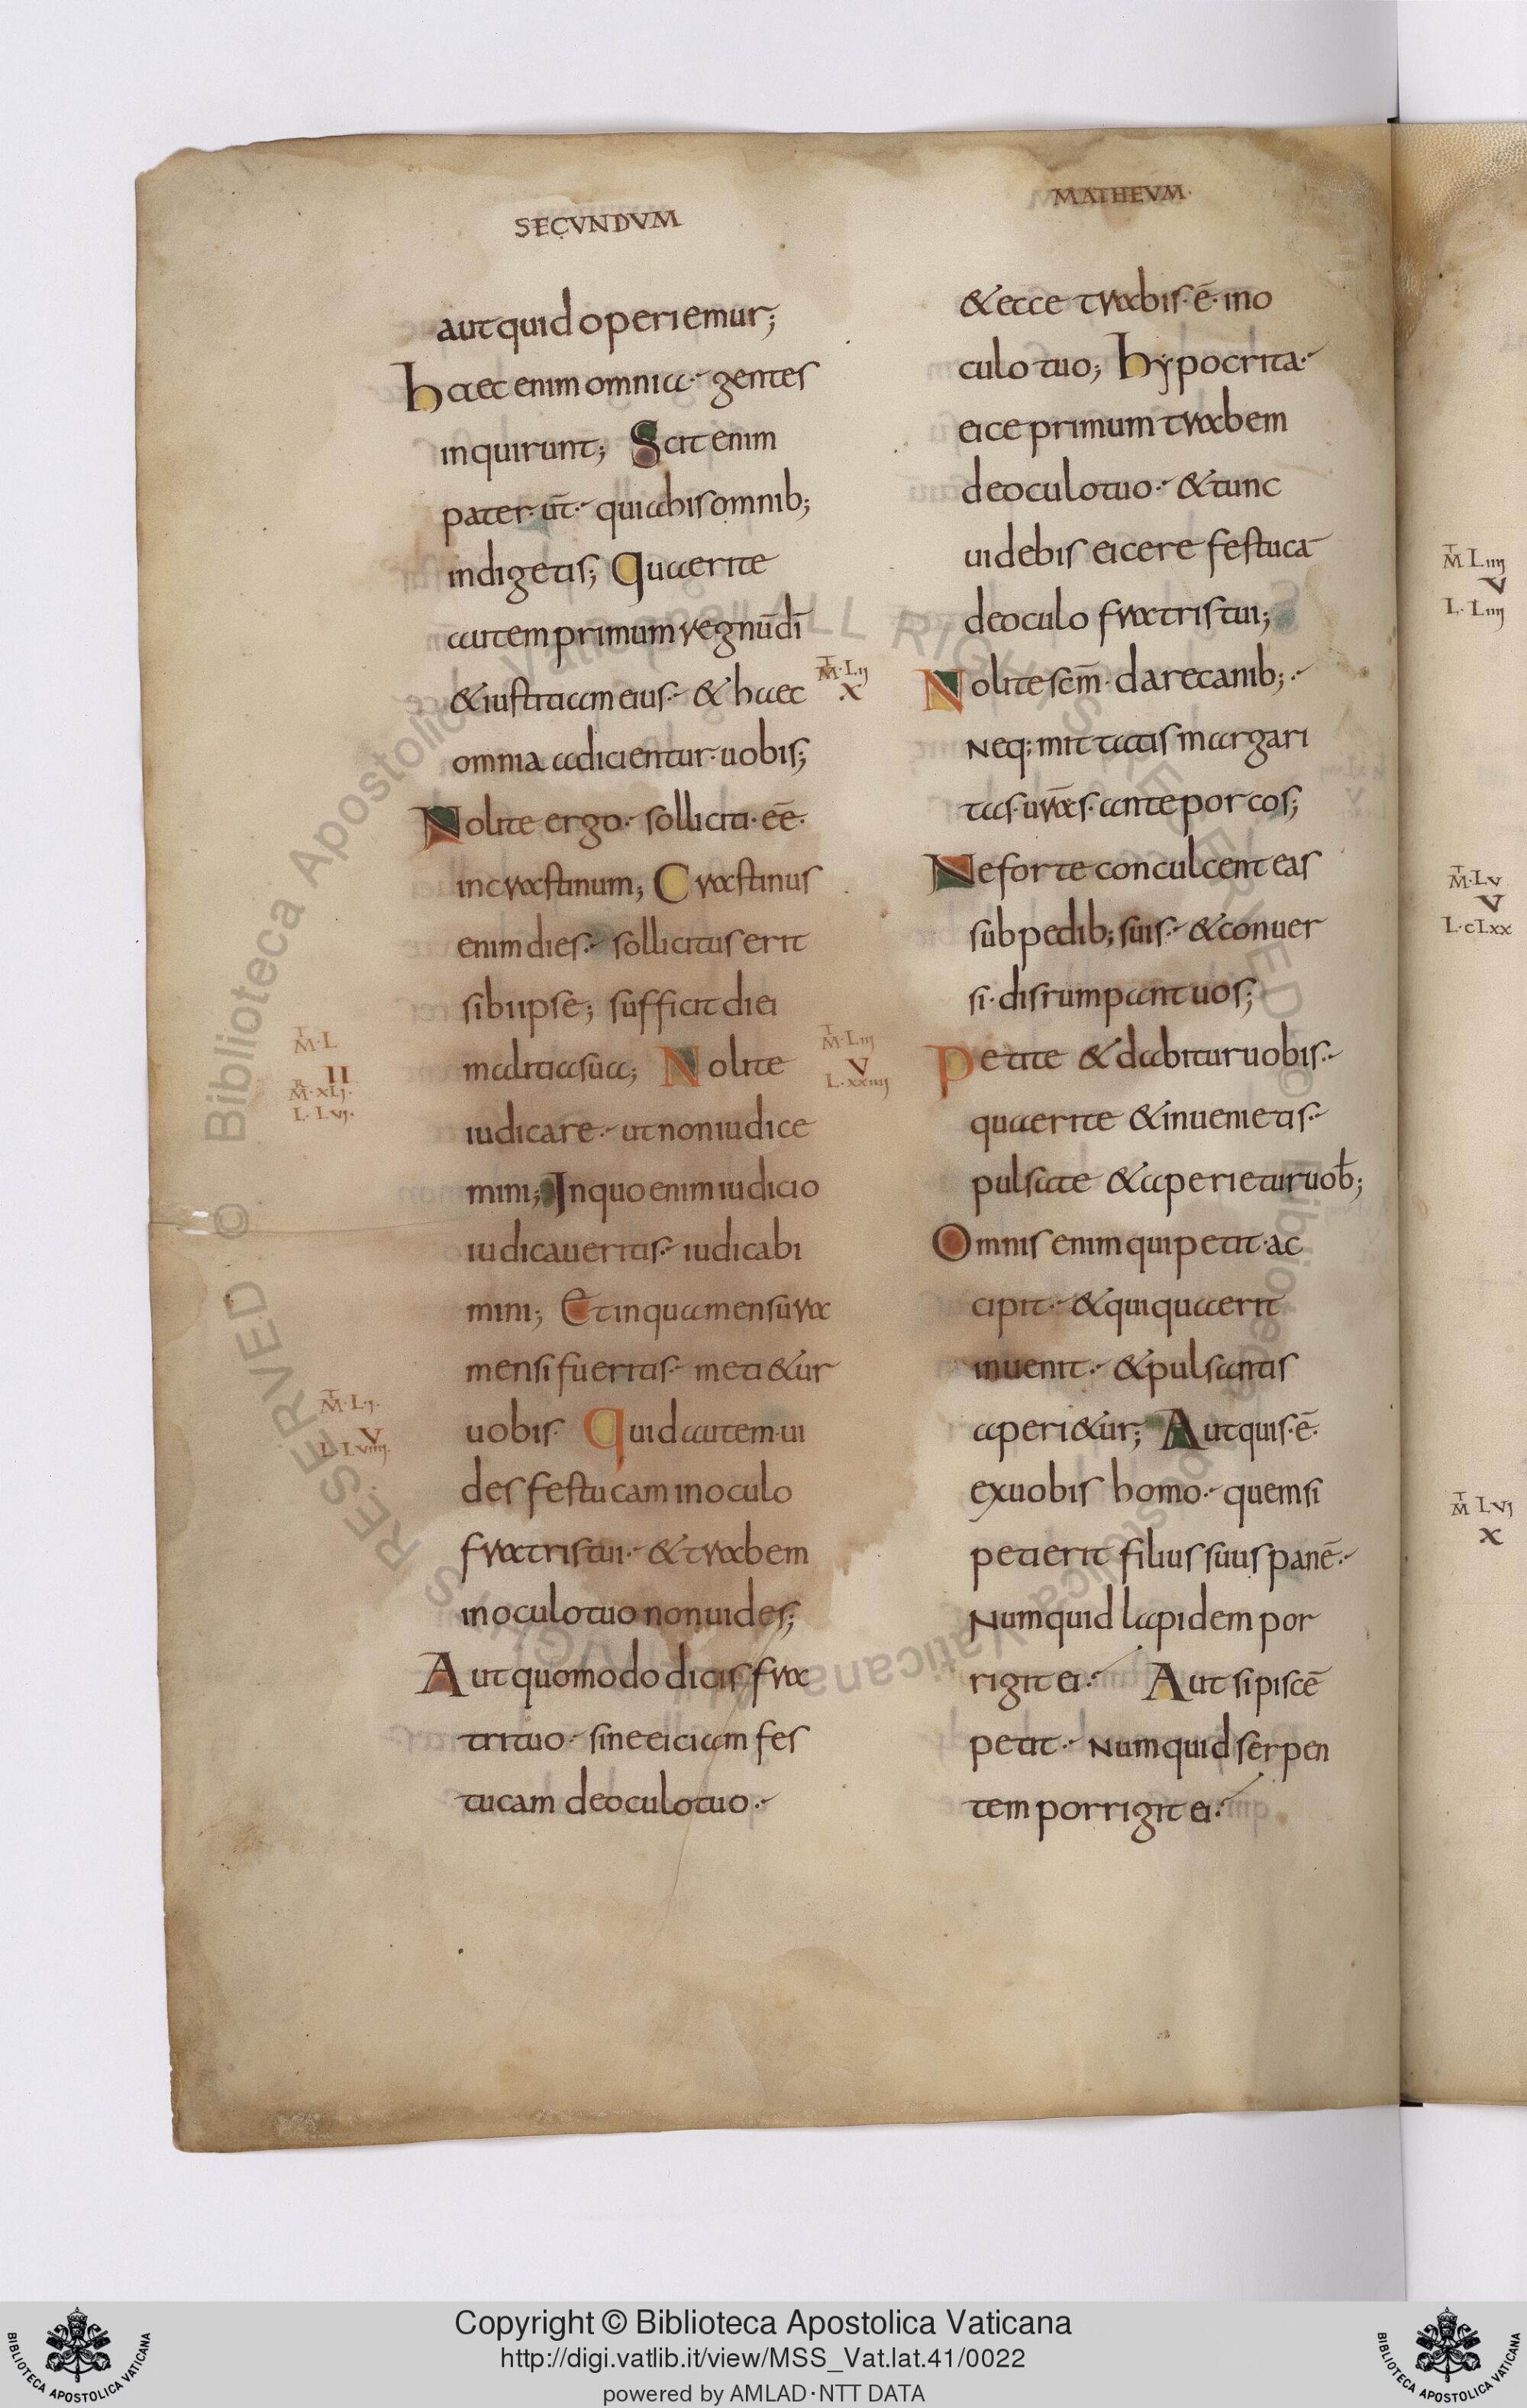 SECVNDVM
aut quid operiemur;
Haec enim omnia gentes
inquirunt; Scit enim
pater ur̄t quia his omnib;
indigetis; Quaerite
autem primum regnū dī
& iustitiam eius & haec
omnia adicientur uobis;
Nolite ergo solliciti eē
in crastinum; Crastinus
enim dies sollicitus erit
sibi ipse; sufficit diei
malitia sua; Nolite
iudicare ut non iudice
mini; In quo enim iudicio
iudicaueritis iudicabi
mini; Et in qua mensura
mensi fueritis meti&ur
uobis Quid autem ui
des festucam in oculo
fratris tui & trabem
in oculo tuo non uides;
Aut quomodo dicis fra
tri tuo sine eiciam fes
tucam de oculo tuo
M LII
X
M L
II
M XLI
L LVI
M LIII
V
L XXIIII
M LI
V
L LVIIII
MATHEVM
& ecce trabis ē in o
culo tuo; Hypocrita
eice primum trabem
de oculo tuo & tunc
uidebis eicere festucā
de oculo fratris tui;
Nolite scm̄ dare canib;
Neq; mittatis margari
tas ur̄as ante porcos;
Ne forte conculcent eas
sub pedib; suis & conuer
si disrumpant uos;
Petite & dabitur uobis
quaerite & inuenietis
pulsate & aperietur uob̄;
Omnis enim qui petit ac
cipit & qui quaerit
inuenit & pulsantis
aperi&ur; Aut quis ē
ex uobis homo quem si
petierit filius suus panē
Numquid lapidem por
rigit ei Aut si piscē
petit Numquid serpen
tem porrigit ei
M LIIII
V
L LIIII
M LV
V
L CLXX
M LVI
X
Copyright © Biblioteca Apostolica Vaticana
http://digi.vatlib.it/view/MSS_Vat.lat.41/0022
powered by AMLAD·NTT DATA
BIBLIOTECA APOSTOLICA VATICANA
BIBLIOTECA APOSTOLICA VATICANA